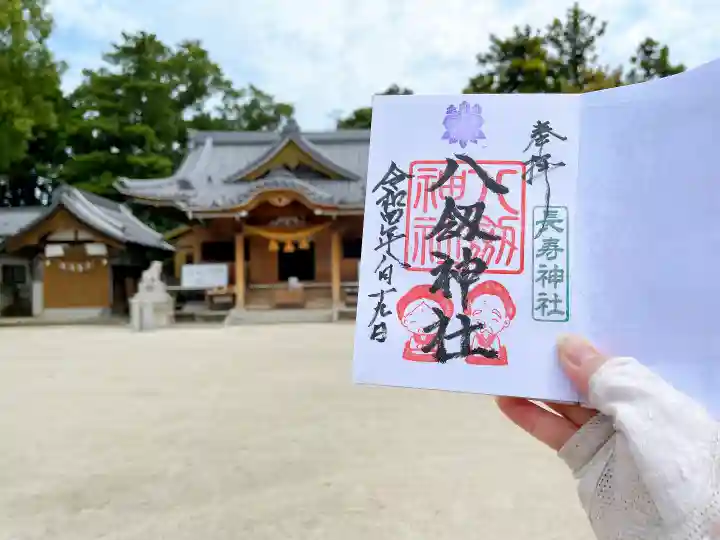 奉拝
長寿神社
八剱神社
八剱神社
令和四年八月十九日